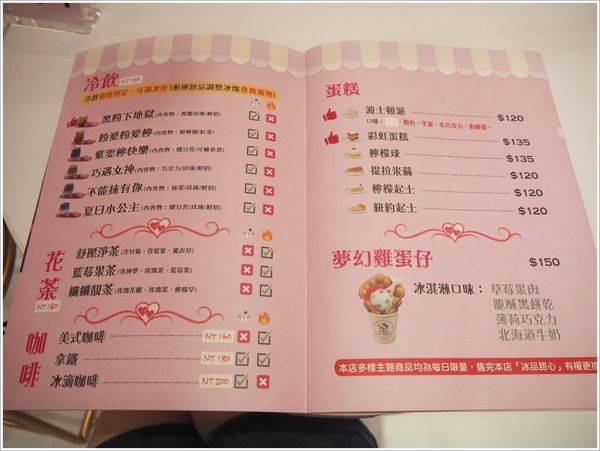 冷飲 NT 185
冷飲甜度固定，可調冰度 (漸層飲品調整冰塊會無漸層)
黑粉下地獄 (內容物：黑糖珍珠/鮮奶)
粉愛粉愛檸 (內容物：鮮檸檬/紅茶)
紫要檸快樂 (內容物：蝶豆花/可爾必思)
巧遇女神 (內容物：巧克力/珍珠/鮮奶)
不能抹有你 (內容物：抹茶/珍珠/鮮奶)
夏日小公主 (內容物：蝶豆花/珍珠/鮮奶)
花茶 NT 180
舒壓淨茶 (洋甘菊、菩提葉、薰衣草)
藍莓果茶 (洛神葵、玫瑰果、藍莓果)
纖纖靚茶 (玫瑰花瓣、玫瑰果、檸檬草)
咖啡
美式咖啡 NT 160
拿鐵 NT 180
冰滴咖啡 NT 200
蛋糕
波士頓派 $120
口味： 、橙色、芋泥、花巧克力、伯爵茶。
彩虹蛋糕 $135
檸檬球 $135
提拉米蘇 $120
檸檬起士 $120
紐約起士 $120
夢幻雞蛋仔 $150
冰淇淋口味： 草莓果肉
脆酥黑餅乾
薄荷巧克力
北海道牛奶
本店多樣主題商品均為每日限量，售完本店「冰品甜心」有權更換